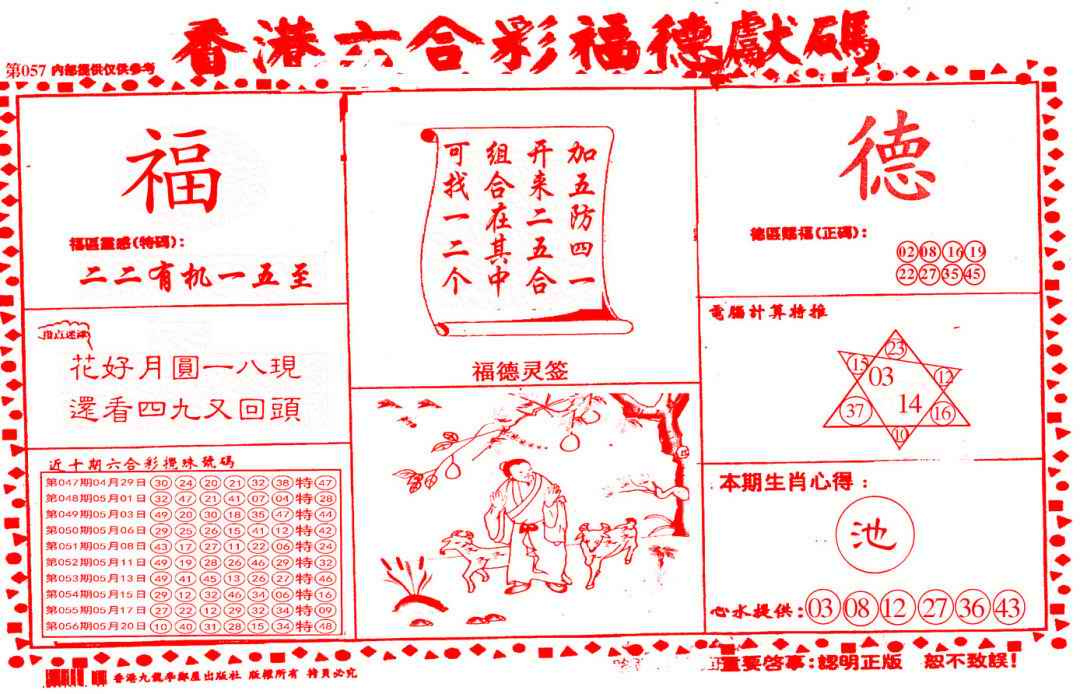 香港六合彩福德獻碼
第057 内部提供仅供参考
福
福區靈感(特碼):
二二有机一五至
指点迷津
花好月圓一八現
還看四九又回頭
近十期六合彩攪珠號碼
第047期04月29日 30 24 20 21 32 38 特 47
第048期05月01日 32 47 21 41 07 04 特 28
第049期05月03日 49 20 30 18 35 47 特 44
第050期05月06日 29 25 26 15 41 12 特 42
第051期05月08日 43 17 27 11 22 06 特 24
第052期05月11日 49 19 28 26 46 29 特 32
第053期05月13日 49 41 45 13 26 27 特 46
第054期05月15日 29 12 32 46 34 06 特 16
第055期05月17日 27 22 12 29 32 34 特 09
第056期05月20日 10 40 31 28 15 34 特 48
加五防四一
开来二五合
组合在其中
可找一二个
福德灵签
德
德區賜福(正碼):
02 08 16 19
22 27 35 45
電腦計算特推
23
15 03 12
37 14 16
10
本期生肖心得:
池
心水提供: 03 08 12 27 36 43
香港九龍學鄰屋出版社 版權所有 特員必究
重要啓事:認明正版 恕不致誤!